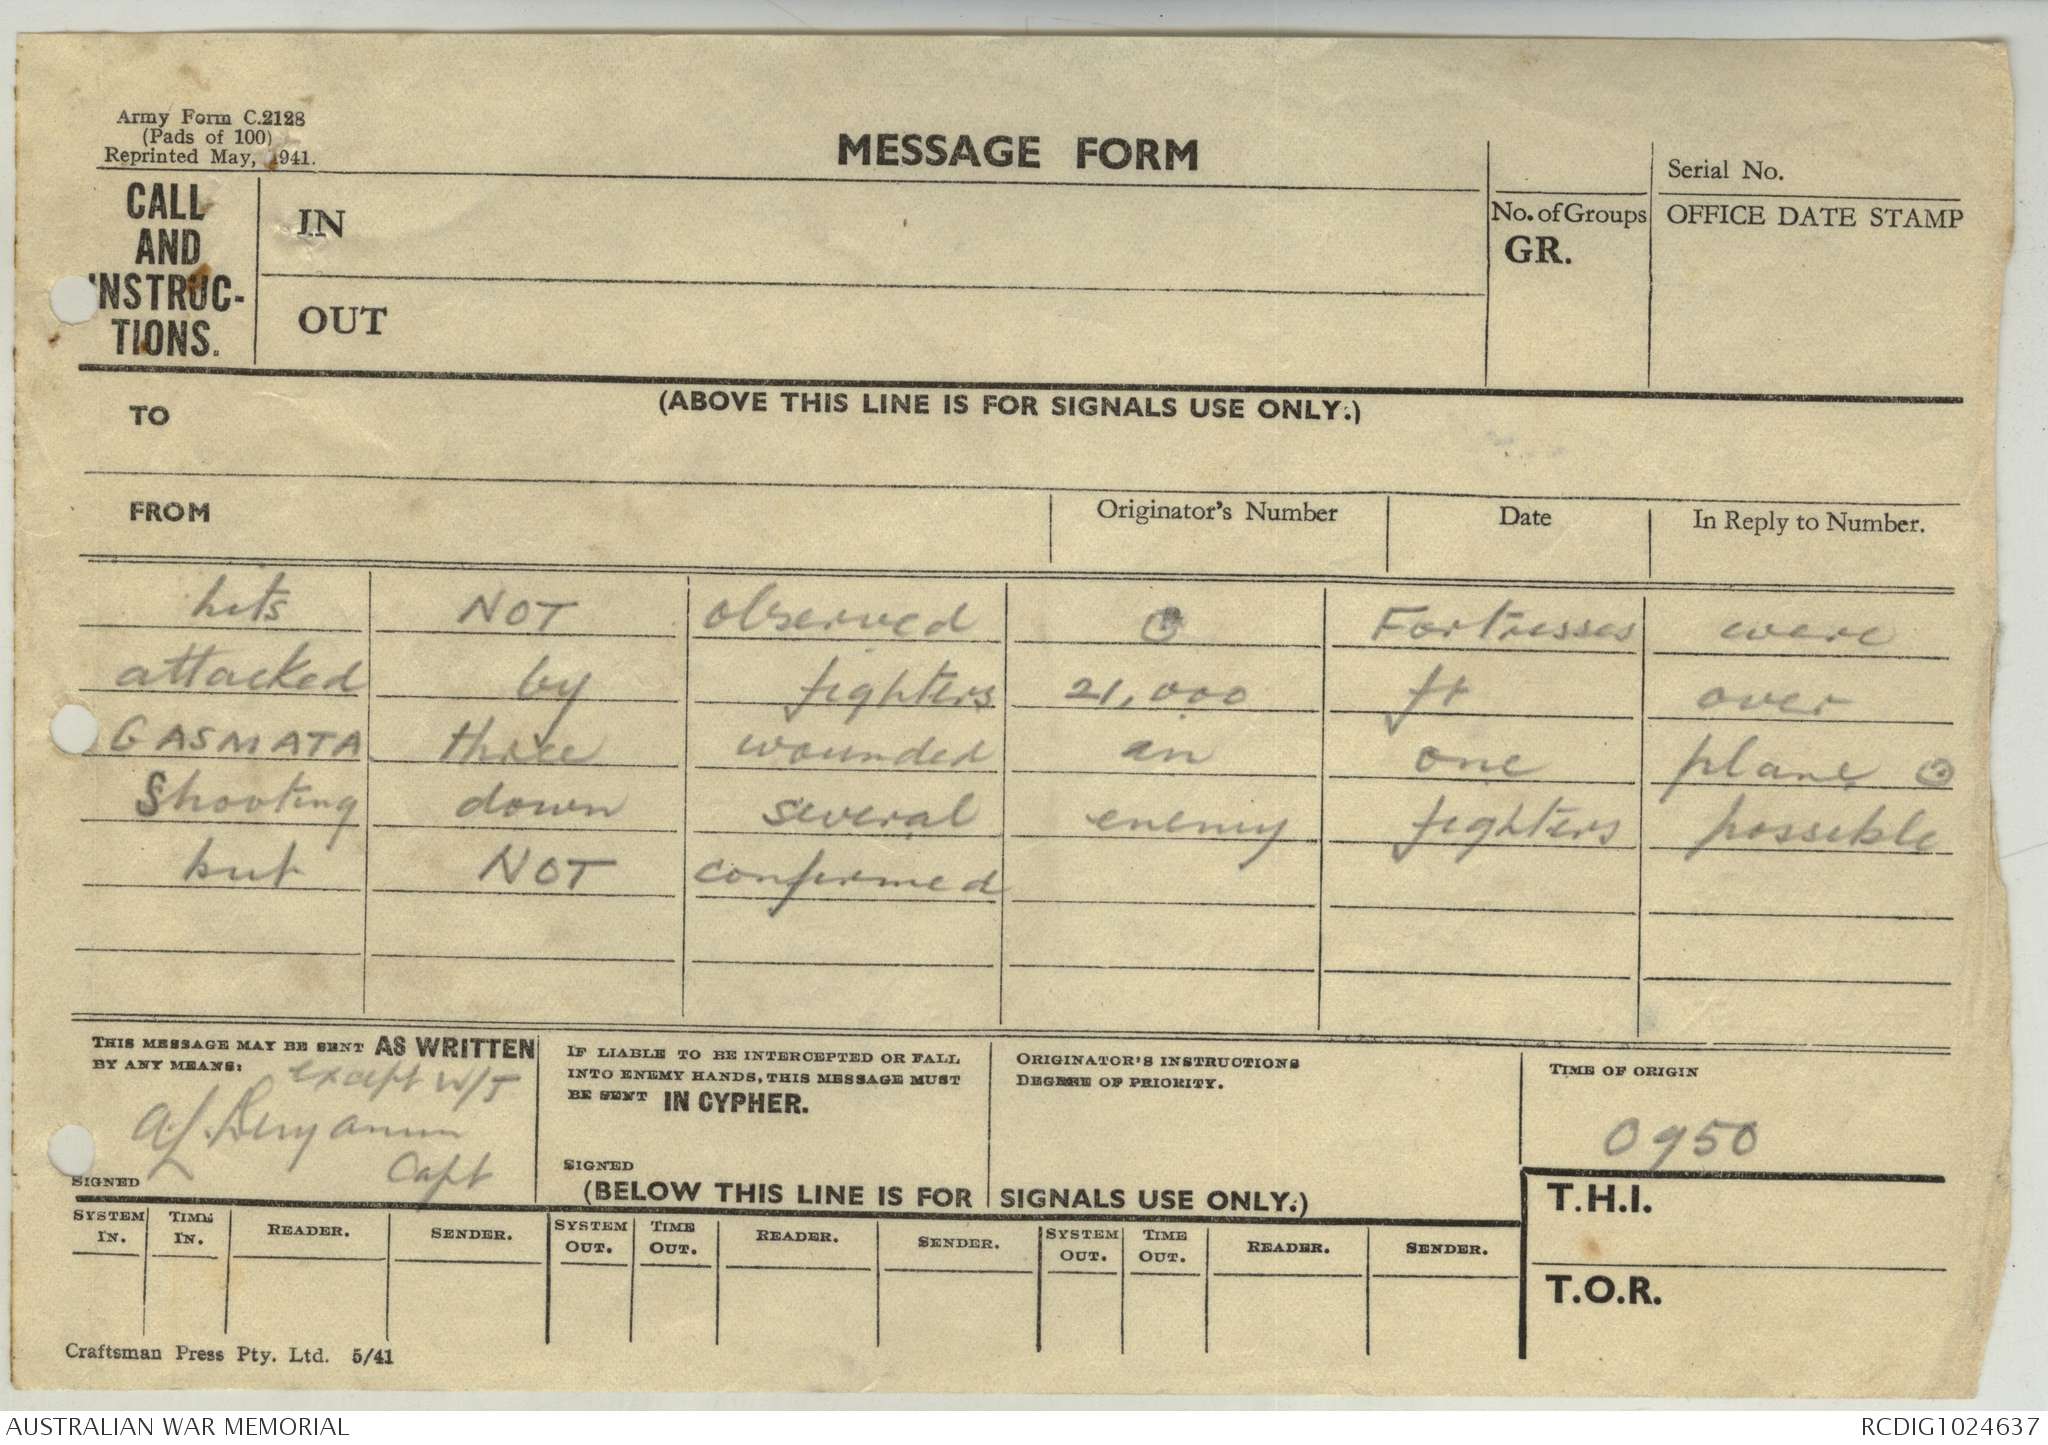 Army Form C.2128
(Pads of 100)
Reprinted May, 1941.
MESSAGE FORM
Serial No.
CALL
AND
INSTRUC-
TIONS.
IN
OUT
No. of Groups
GR.
OFFICE DATE STAMP
(ABOVE THIS LINE IS FOR SIGNALS USE ONLY.)
TO
FROM
Originator's Number
Date
In Reply to Number.
hits NOT observed ⊙ Fortresses were
attacked by fighters 21,000 ft over
GASMATA three wounded in one plane ⊙
Shooting down several enemy fighters possible
but NOT confirmed
THIS MESSAGE MAY BE SENT AS WRITTEN
BY ANY MEANS:
except W/T
A.L. Benjamin
Capt
SIGNED
IF LIABLE TO BE INTERCEPTED OR FALL
INTO ENEMY HANDS, THIS MESSAGE MUST
BE SENT IN CYPHER.
SIGNED
ORIGINATOR'S INSTRUCTIONS
DEGREE OF PRIORITY.
TIME OF ORIGIN
0950
(BELOW THIS LINE IS FOR SIGNALS USE ONLY.)
T.H.I.
T.O.R.
SYSTEM IN. TIME IN. READER. SENDER. SYSTEM OUT. TIME OUT. READER. SENDER. SYSTEM OUT. TIME OUT. READER. SENDER.
Craftsman Press Pty. Ltd. 5/41
AUSTRALIAN WAR MEMORIAL
RCDIG1024637